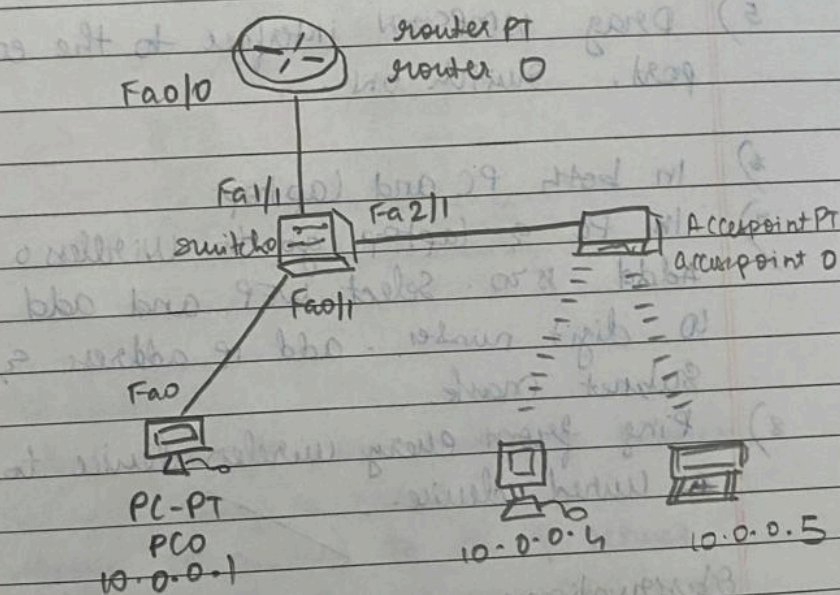 router PT
router 0
Fa0/0
Fa1/1
Fa2/1
switch0
Accespoint PT
accuspoint 0
Fa0/1
Fa0
PC-PT
PC0
10.0.0.1
10.0.0.4
10.0.0.5